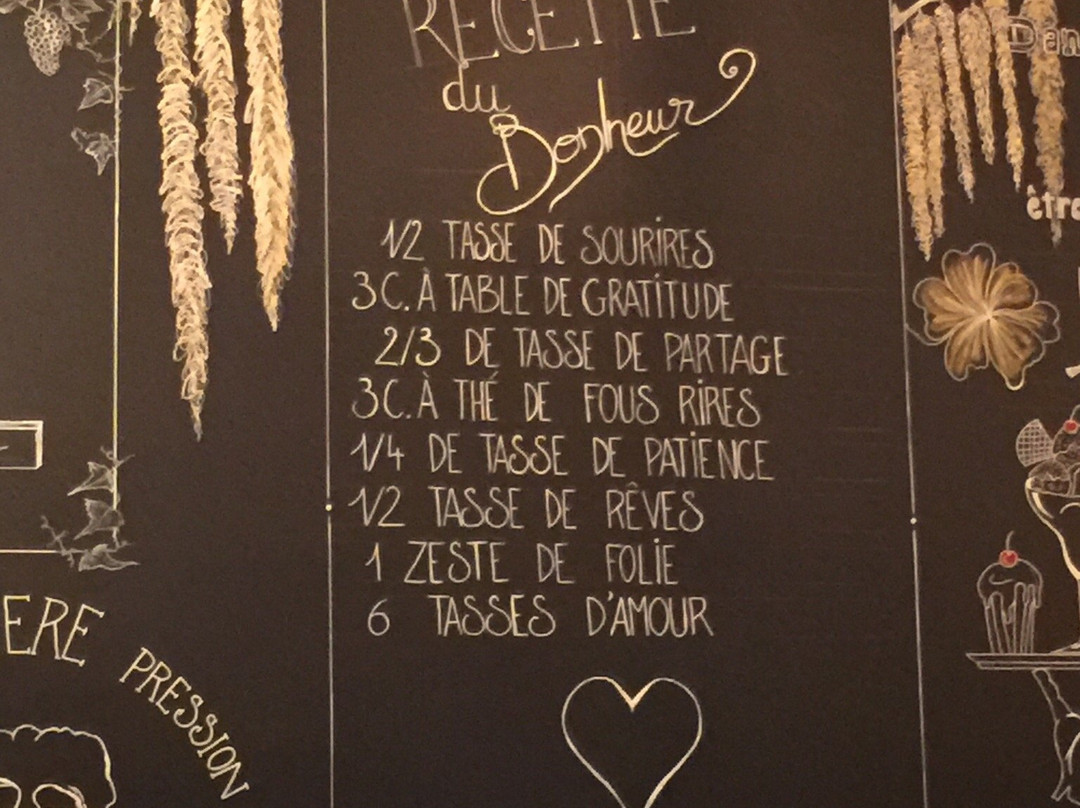 RECETTE
du
Bonheur
1/2 TASSE DE SOURIRES
3C. À TABLE DE GRATITUDE
2/3 DE TASSE DE PARTAGE
3C. À THÉ DE FOUS RIRES
1/4 DE TASSE DE PATIENCE
1/2 TASSE DE RÊVES
1 ZESTE DE FOLIE
6 TASSES D'AMOUR
PRESSION
être